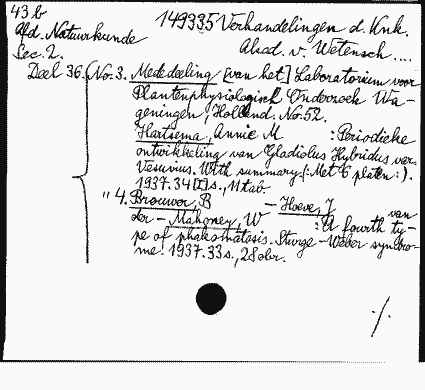 43.b
149335 Verhandelingen d. Knk.
Afd. Natuurkunde
Akad. v. Wetensch....
Sec. 2.
Deel 36. (No. 3. Mededeeling [van het] Laboratorium voor
Plantenphysiologisch Onderzoek Wa-
geningen, Holland. No. 52.
Hartsema, Annie M : Periodieke
ontwikkeling van Gladiolus Hybridus var.
Vesuvius. With summary (: Met 6 platen :).
1937. 34 s., 11 tab.
" 4. Brouwer, B - Hoeve, J van
der - Mahoney, W : A fourth ty-
pe of phakomatosis. Sturge-Weber syndro-
me. 1937. 33 s., 28 obr.
./.